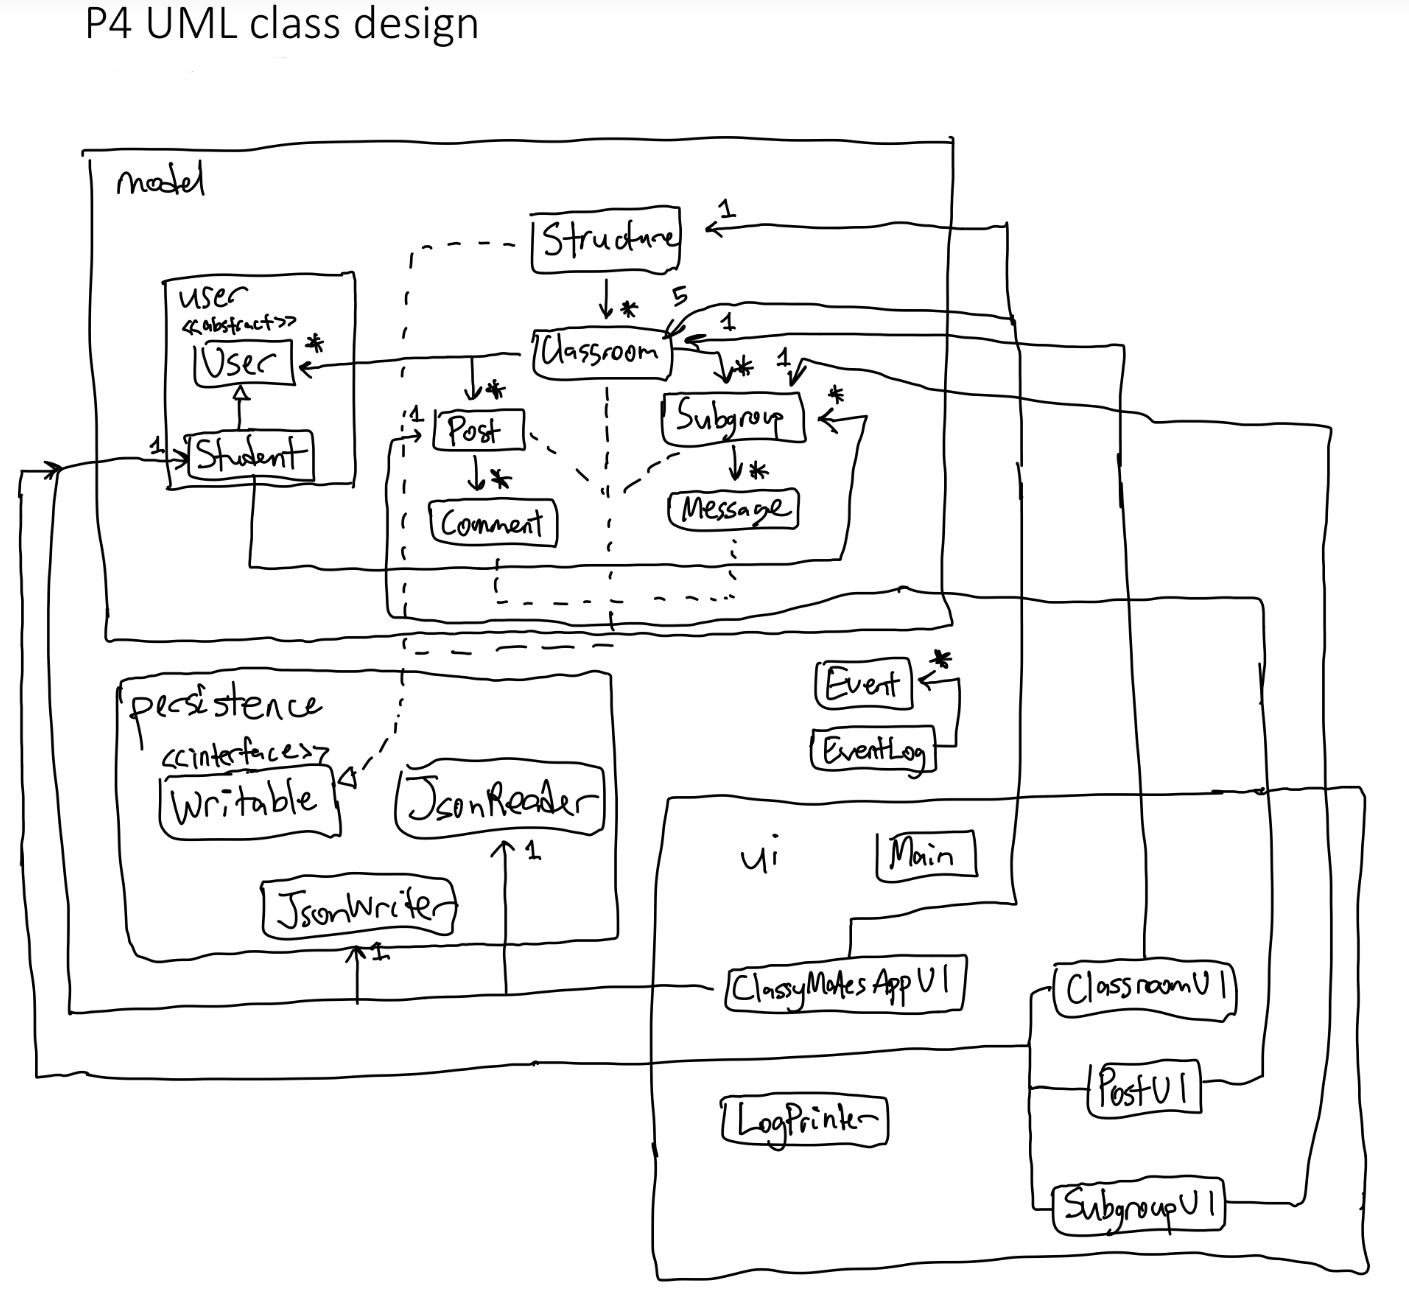 P4 UML class design
model
1
Structure
*
5
user
<<abstract>>
User
*
Classroom
1
*
1
*
*
1
Post
Subgroup
1
Student
*
*
Comment
Message
persistence
<<interface>>
Writable
JsonReader
1
JsonWriter
1
Event
*
EventLog
ui
Main
ClassyMatesAppUI
ClassroomUI
PostUI
LogPrinter
SubgroupUI